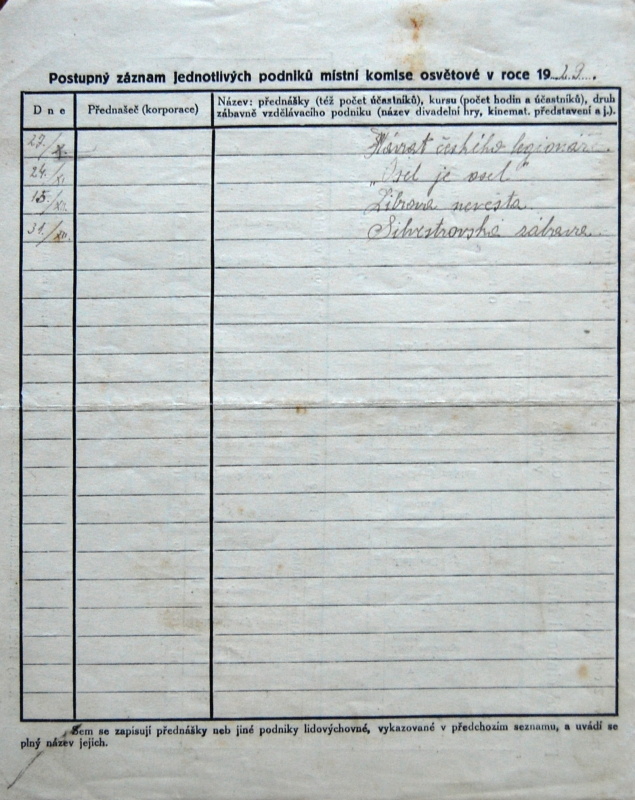 Postupný záznam jednotlivých podniků místní komise osvětové v roce 1929.
Dne
Přednašeč (korporace)
Název: přednášky (též počet účastníků), kursu (počet hodin a účastníků), druh
zábavně vzdělávacího podniku (název divadelní hry, kinemat. představení a j.).
27./X. Návrat českého legionáře.
24./XI. „Osel je osel"
15./XII. nevěsta.
31./XII. Silvestrovská zábava.
Sem se zapisují přednášky neb jiné podniky lidovýchovné, vykazované v předchozím seznamu, a uvádí se
plný název jejich.